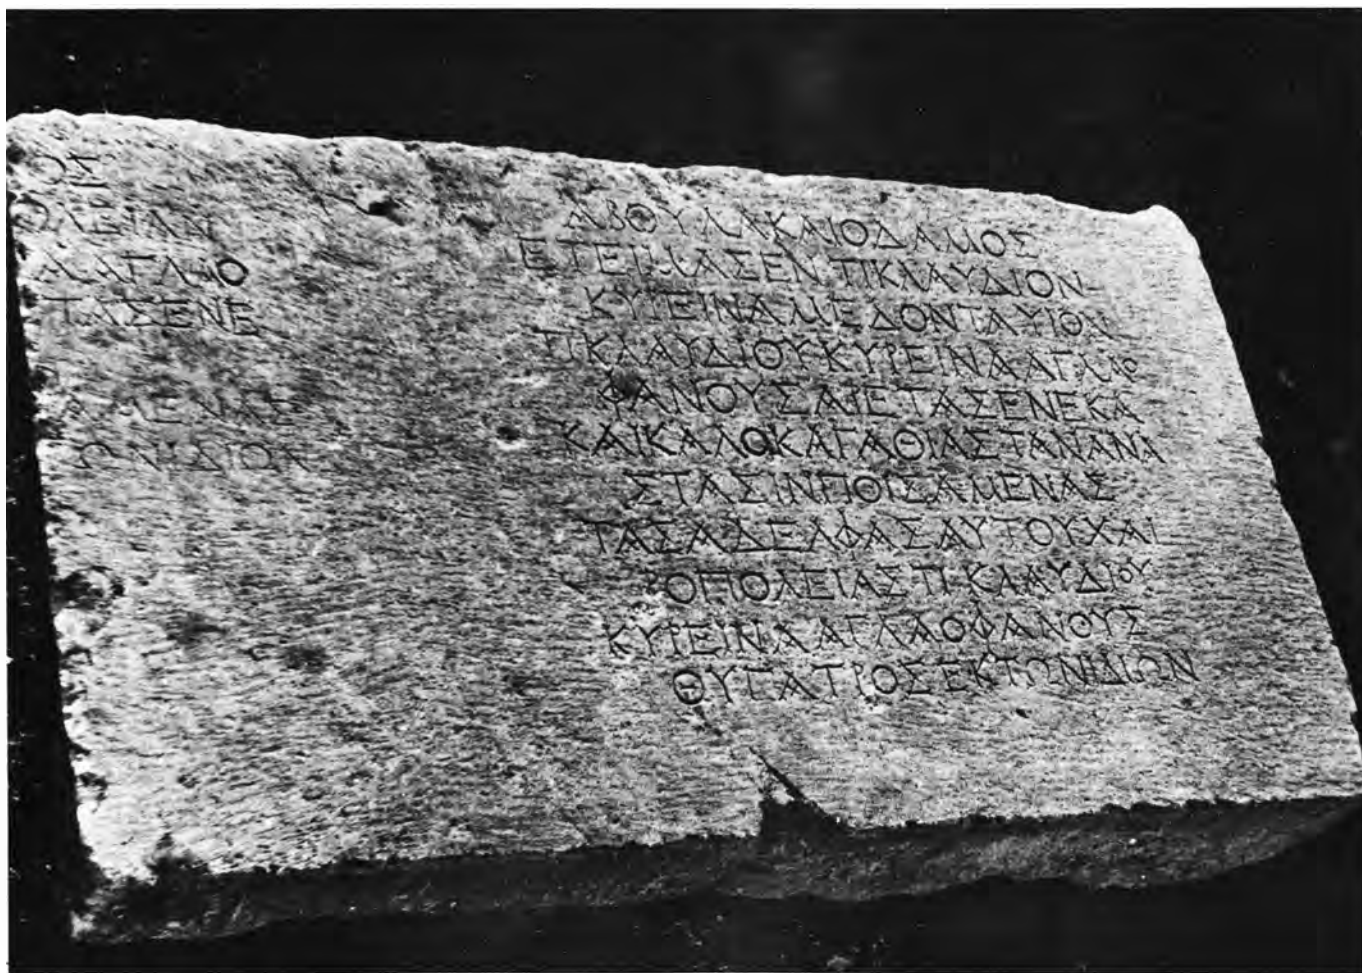 ΟΣ
ΑΓΛΑΟ
ΤΑΣΕΝΕ
ΜΕΝΑΣ
ΩΝΙΔΙΩΝ
ΑΒΟΥΛΑΚΑΙΟΔΑΜΟΣ
ΕΤΕΙΜΑΣΕΝΤΙΚΛΑΥΔΙΟΝ
ΚΥΡΕΙΝΑΜΕΔΟΝΤΑΥΙΟΝ
ΤΙΚΛΑΥΔΙΟΥΚΥΡΕΙΝΑΑΓΛΑΟ
ΦΑΝΟΥΣΑΡΕΤΑΣΕΝΕΚΑ
ΚΑΙΚΑΛΟΚΑΓΑΘΙΑΣΤΑΝΑΝΑ
ΣΤΑΣΙΝΠΟΙΣΑΜΕΝΑΣ
ΤΑΣΑΔΕΛΦΑΣΑΥΤΟΥΧΑΙ
ΡΟΠΟΛΕΙΑΣΤΙΚΛΑΥΔΙΟΥ
ΚΥΡΕΙΝΑΑΓΛΑΟΦΑΝΟΥΣ
ΘΥΓΑΤΡΟΣΕΚΤΩΝΙΔΙΩΝ